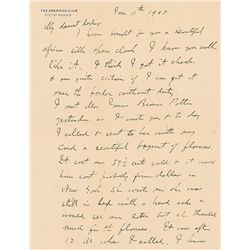 THE AMERICAN CLUB
CITY OF MEXICO
Jan 11th 1905
My dearest
I have bought for you a beautiful
opera cloak. I know you will
like it. I think I got it cheap.
I am quite certain if I can get it
over the border without duty
I met Mrs Potter
yesterday as I wrote you & to day
I called & sent to her with my
card a beautiful bouquet of flowers.
It cost me 37½ cents gold & it would
have cost probably five dollars in
New York. She wrote me she was
still in bed with a head ache &
would see me later but she thanked
much for the flowers. It was after
12 M when I called. I know